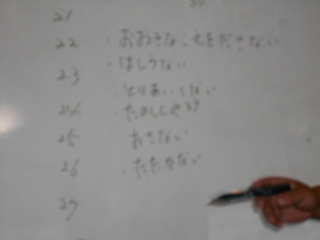 21
22 ・おおきなこえをださない
23 ・はしらない
・とりあいしない
24 たのしし
25 おさない
26 ・たたかない
27